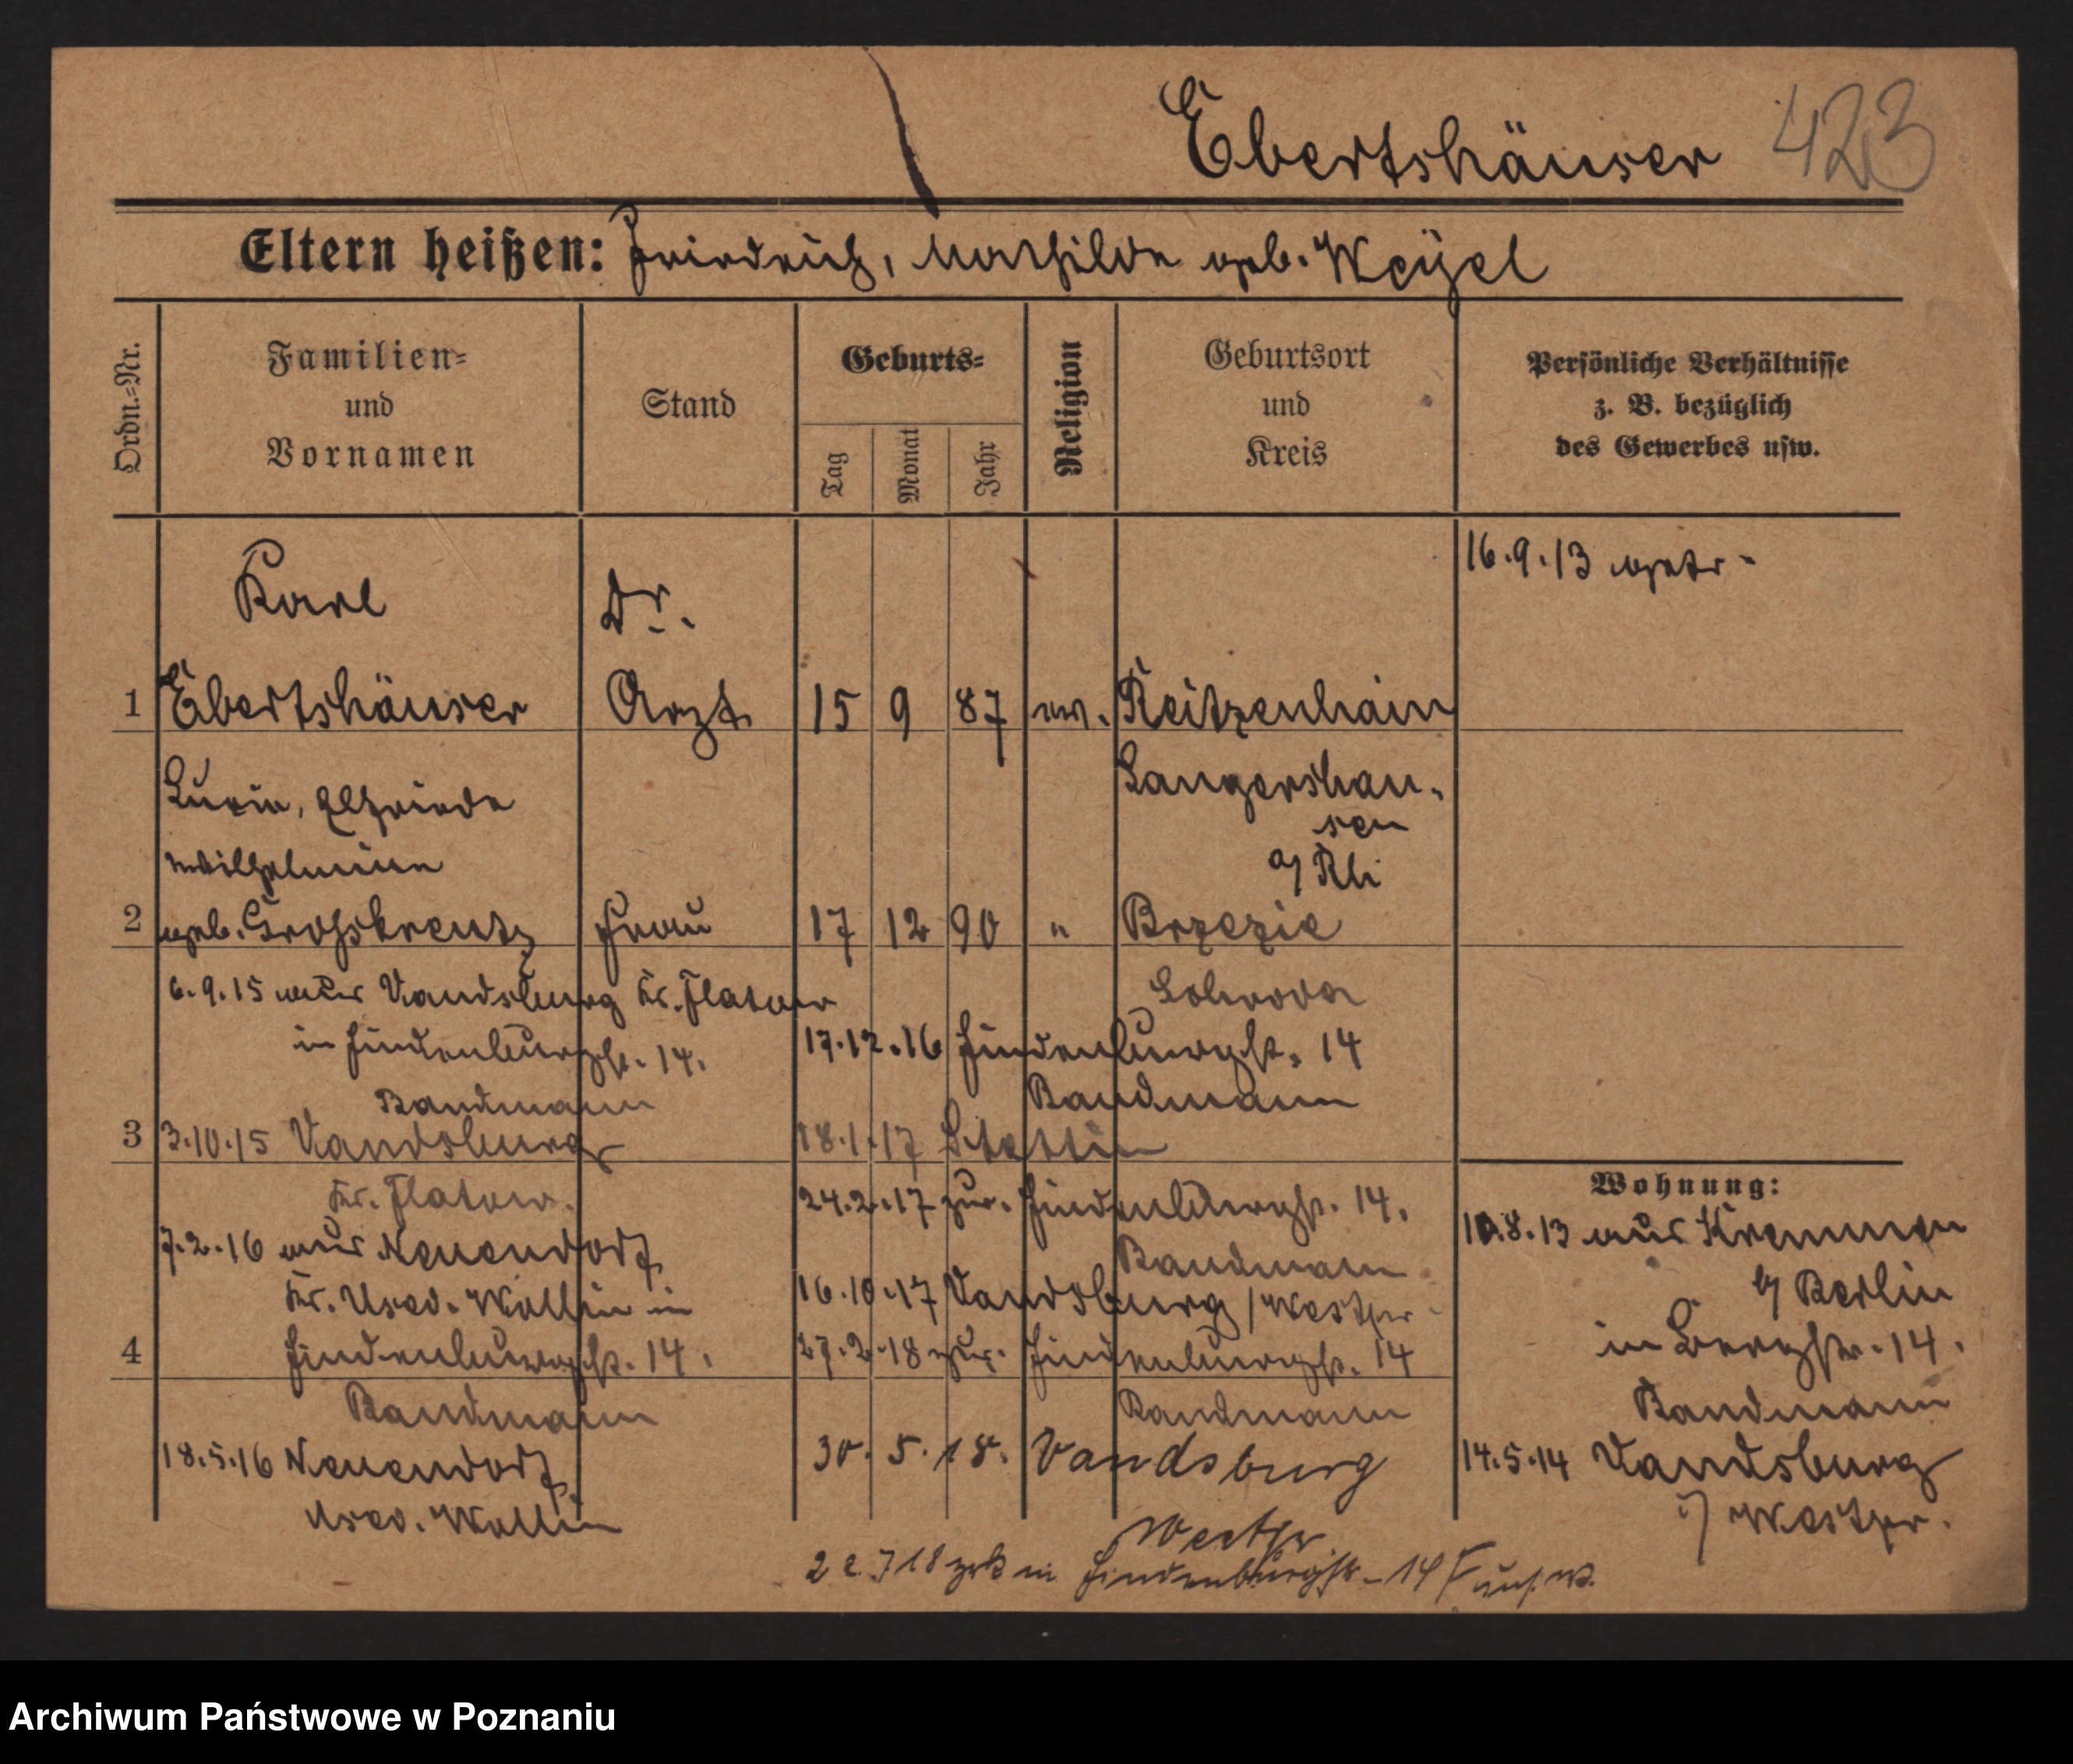 Ebertshäuser 423
Eltern heißen: Friedrich, Mathilde geb. Weyel
Ordn.=Nr.
Familien=
und
Vornamen
Stand
Geburts=
Tag
Monat
Jahr
Religion
Geburtsort
und
Kreis
Persönliche Verhältnisse
z. B. bezüglich
des Gewerbes usw.
Karl Dr. 16.9.13 getr.
1 Ebertshäuser Arzt 15 9 87 ev. Reitzenhain
Lucie, Elfriede Langershau-
sen
Wilhelmine a/ Rh
2 geb. Grosskreutz Frau 17 12 90 " Brzezie
6.9.15 aus Vandsburg Kr. Flatow
in Hindenburgstr. 14.
Bandmann
3 3.10.15 Vandsburg
Kr. Flatow.
7.2.16 aus Neuendorf
Kr. Used. Wollin in
4 Hindenburgstr. 14.
Bandmann
18.5.16 Neuendorf
Used. Wollin
17.12.16 Hindenburgstr. 14
Bandmann
18.1.17 Stettin
24.2.17 zur. Hindenburgstr. 14.
Bandmann
16.10.17 Vandsburg /Westpr.
27.2.18 zur. Hindenburgstr. 14
Bandmann
30. 5. 18. Vandsburg
Westpr
18 in Hindenburgstr. 14
Wohnung:
10.8.13 aus Kremmen
b/ Berlin
in Bergstr. 14.
Bandmann
14.5.14 Vandsburg
i/ Westpr.
Archiwum Państwowe w Poznaniu